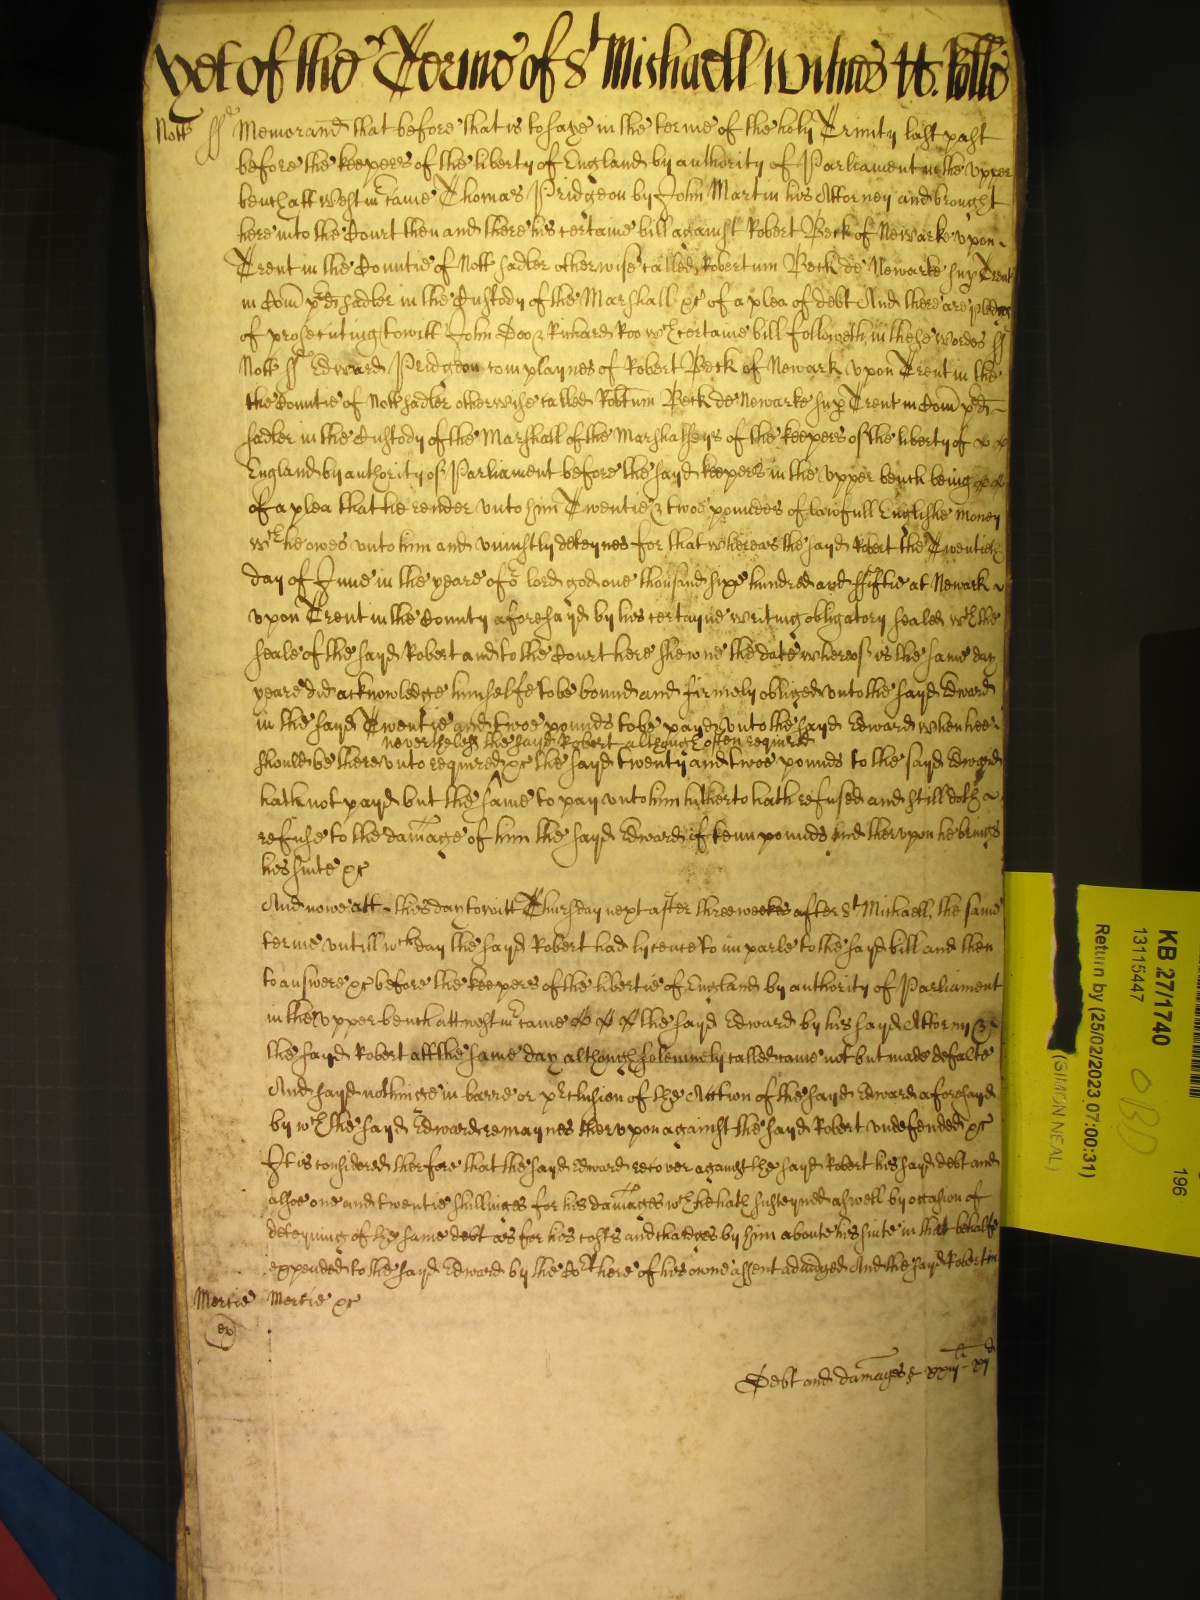 yet of the Terme of St Michaell Witnes H. Rolle
Nott ss Memorand that before that is to saye in the terme of the holy Trinity last past
before the keepers of the liberty of England by authority of Parliament in the upper
bench att Westmr came Thomas Pridgeon by John Martin his Attorney and brought
here into the Court then and there his certaine bill against Robert Beck of Newarke upon
Trent in the Countie of Nott sadler otherwise called Robertum Beck de Newarke sup Trent
in Com pred sadler in the Custody of the Marshall &c of a plea of debt And there are pledges
of prosecuting towitt John Doo & Richard Roo wch certaine bill followeth in these wordes ss
Nott ss Edward Pridgeon complaynes of Robert Beck of Newark upon Trent in the
the Countie of Nott sadler otherwise called Robtum Beck de Newarke sup Trent in Com pred
sadler in the Custody of the Marshall of the Marshalseys of the keepers of the liberty of
England by authority of Parliament before the sayd keepers in the upper bench being
of a plea that he render unto him Twentie & twoe poundes of lawfull Englishe money
wch he owes unto him and uniustly deteynes for that whereas the sayd Robert the Twentieth
day of June in the yeare of or lord god one thousand sixe hundred and ffiftie at Newark
upon Trent in the County aforesayd by his certayne writing obligatory sealed wth the
seale of the sayd Robert and to the Court here shewne the date whereof is the same day
yeare did acknowledge himselfe to be bound and firmely obliged unto the sayd Edward
in the sayd Twentie and twoe pounds to be payd unto the sayd Edward when hee
neverthelesse the sayd Robert although often required
should be thereunto required &c the sayd twenty and twoe pounds to the sayd Edward
hath not payd but the same to pay unto him hitherto hath refused and still doth
refuse to the damage of him the sayd Edward of tenn pounds and therupon he brings
his suite &c
And nowe att this day towitt Thursday next after three weekes after St Michaell, the same
terme untill wch day the sayd Robert had lycence to imparle to the sayd bill and then
to answere &c before the keepers of the libertie of England by authority of Parliament
in the upper bench att westmr came the sayd Edward by his sayd Attorny &
the sayd Robert att the same day although solemnely called came not but made defalte
And sayd nothinge in barre or preclusion of the Action of the sayd Edward aforesayd
by wch the sayd Edward remaynes therupon against the sayd Robert undefended &c
It is considered therfore that the sayd Edward recover against the sayd Robert his sayd debt and
alsoe one and twentie shillinges for his damages wch he hath susteyned aswell by occasion of
deteyning of the same debt as for his costs and chardges by him aboute his suite in that behalfe
expended to the sayd Edward by the Cort here of his owne assent adiudged And the sayd Robert in
Mercie Mercie &c
Debt and damages xxiijli xijd
KB 27/1740
13115447
196
Return by (25/02/2023 07:00:31)
(SIMON NEAL)